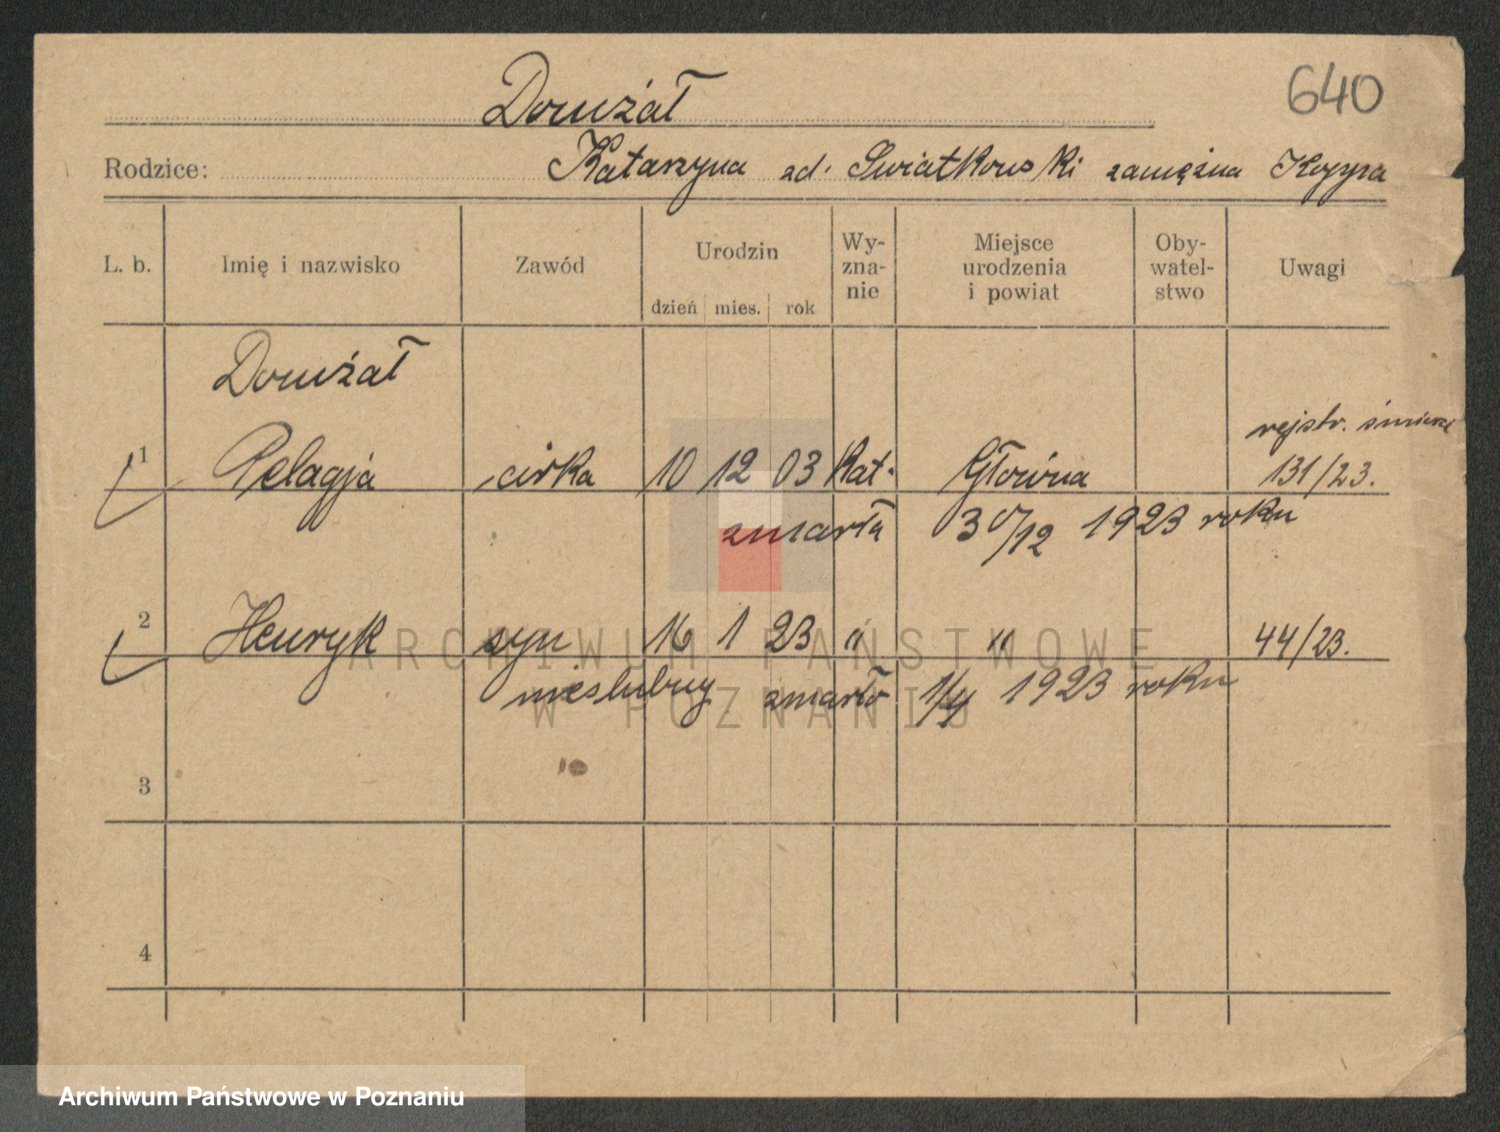 640
Domżał
Rodzice: Katarzyna zd. Świątkowski zamężna
L. b. Imię i nazwisko Zawód Urodzin dzień mies. rok Wy-zna-nie Miejsce urodzenia i powiat Oby-watel-stwo Uwagi
Domżał
rejstr. śmierci
1 Pelagja córka 10 12 03 Kat. Główna 131/23.
zmarła 30/12 1923 roku
2 Henryk syn 16 1 23 " " 44/23.
nieślubny zmarło 1/4 1923 roku
3
4
ARCHIWUM PAŃSTWOWE
W POZNANIU
Archiwum Państwowe w Poznaniu